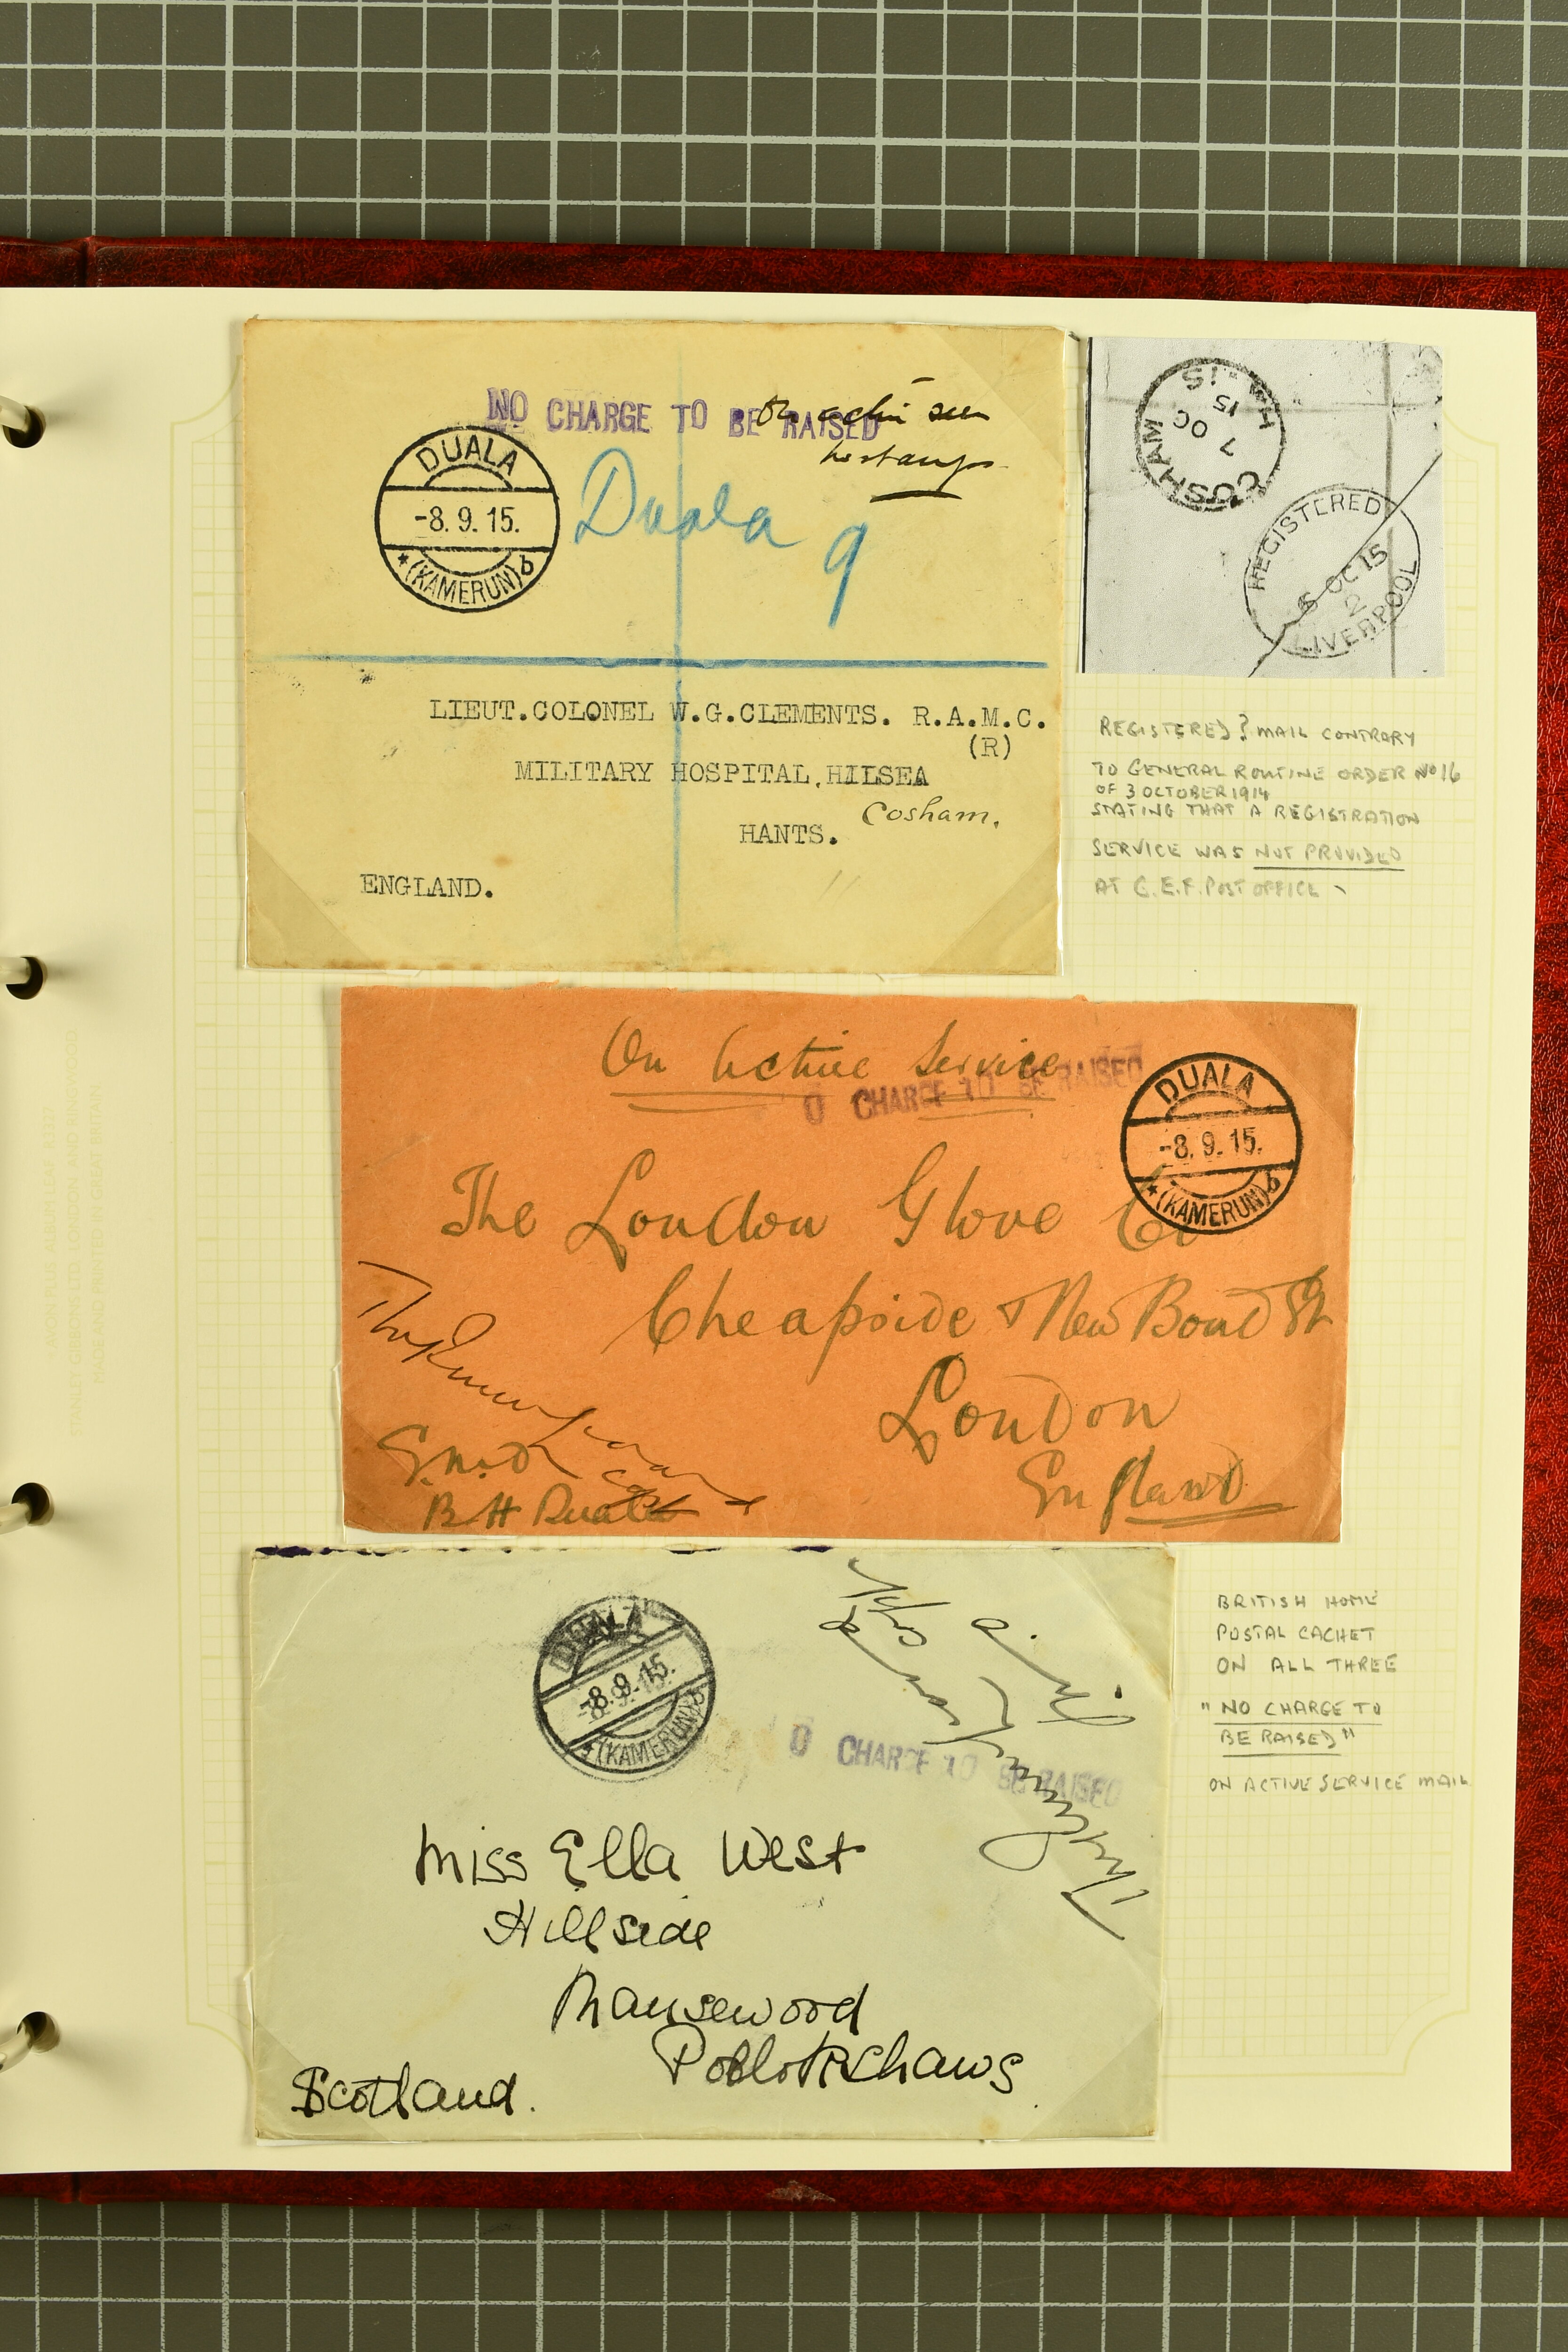 NO CHARGE TO BE RAISED
no stamps
DUALA
-8.9.15.
*(KAMERUN)b
Duala 9
LIEUT.COLONEL W.G.CLEMENTS. R.A.M.C.
(R)
MILITARY HOSPITAL,HILSEA
Cosham.
HANTS.
ENGLAND.
COSHAM
7 OC
15
REGISTERED
6 OC 15
2
LIVERPOOL
REGISTERED? MAIL CONTRARY
TO GENERAL ROUTINE ORDER No 16
OF 3 OCTOBER 1914
STATING THAT A REGISTRATION
SERVICE WAS NOT PROVIDED
AT C.E.F. POST OFFICE
On Active Service
O CHARGE TO BE RAISED
DUALA
-8.9.15.
*(KAMERUN)b
The London Glove Co
Cheapside & New Bond St
London
England
Capt
B H Duala
DUALA
-8.9.15.
*(KAMERUN)b
O CHARGE TO BE RAISED
Miss Ella West
Hillside
Mansewood
Pollokshaws
Scotland.
BRITISH HOME
POSTAL CACHET
ON ALL THREE
"NO CHARGE TO
BE RAISED"
ON ACTIVE SERVICE MAIL